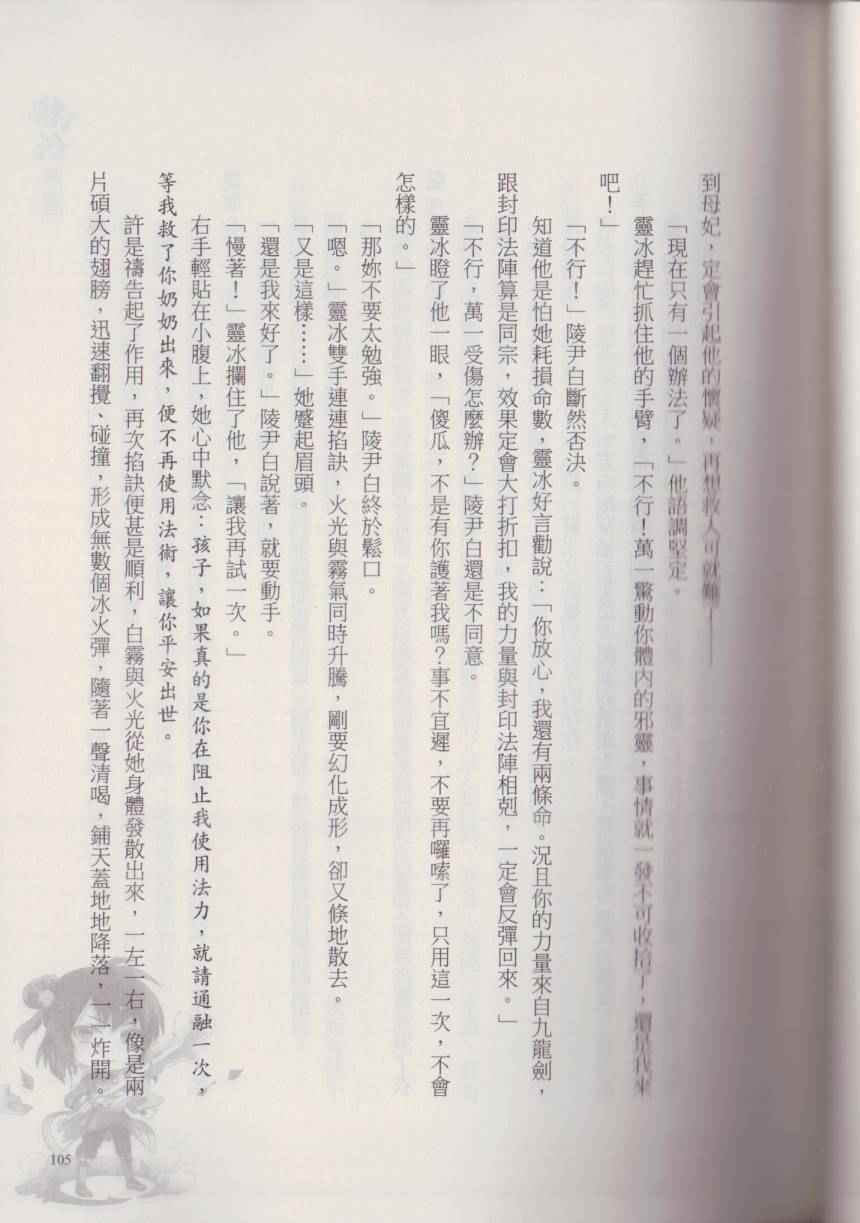 到母妃，定會引起他的懷疑，再想救人可就難——
「現在只有一個辦法了。」他語調堅定。
靈冰趕忙抓住他的手臂，「不行！萬一驚動你體內的邪靈，事情就一發不可收拾了，還是我來
吧！」
「不行！」陵尹白斷然否決。
知道他是怕她耗損命數，靈冰好言勸說：「你放心，我還有兩條命。況且你的力量來自九龍劍，
跟封印法陣算是同宗，效果定會大打折扣，我的力量與封印法陣相剋，一定會反彈回來。」
「不行，萬一受傷怎麼辦？」陵尹白還是不同意。
靈冰瞪了他一眼，「傻瓜，不是有你護著我嗎？事不宜遲，不要再囉嗦了，只用這一次，不會
怎樣的。」
「那妳不要太勉強。」陵尹白終於鬆口。
「嗯。」靈冰雙手連連掐訣，火光與霧氣同時升騰，剛要幻化成形，卻又倏地散去。
「又是這樣……」她蹙起眉頭。
「還是我來好了。」陵尹白說著，就要動手。
「慢著！」靈冰攔住了他，「讓我再試一次。」
右手輕貼在小腹上，她心中默念：孩子，如果真的是你在阻止我使用法力，就請通融一次，
等我救了你奶奶出來，便不再使用法術，讓你平安出世。
許是禱告起了作用，再次掐訣便甚是順利，白霧與火光從她身體發散出來，一左一右，像是兩
片碩大的翅膀，迅速翻攪、碰撞，形成無數個冰火彈，隨著一聲清喝，鋪天蓋地地降落，一一炸開。
105